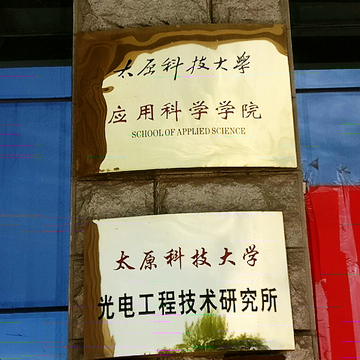 太原科技大学
应用科学学院
SCHOOL OF APPLIED SCIENCE
太原科技大学
光电工程技术研究所